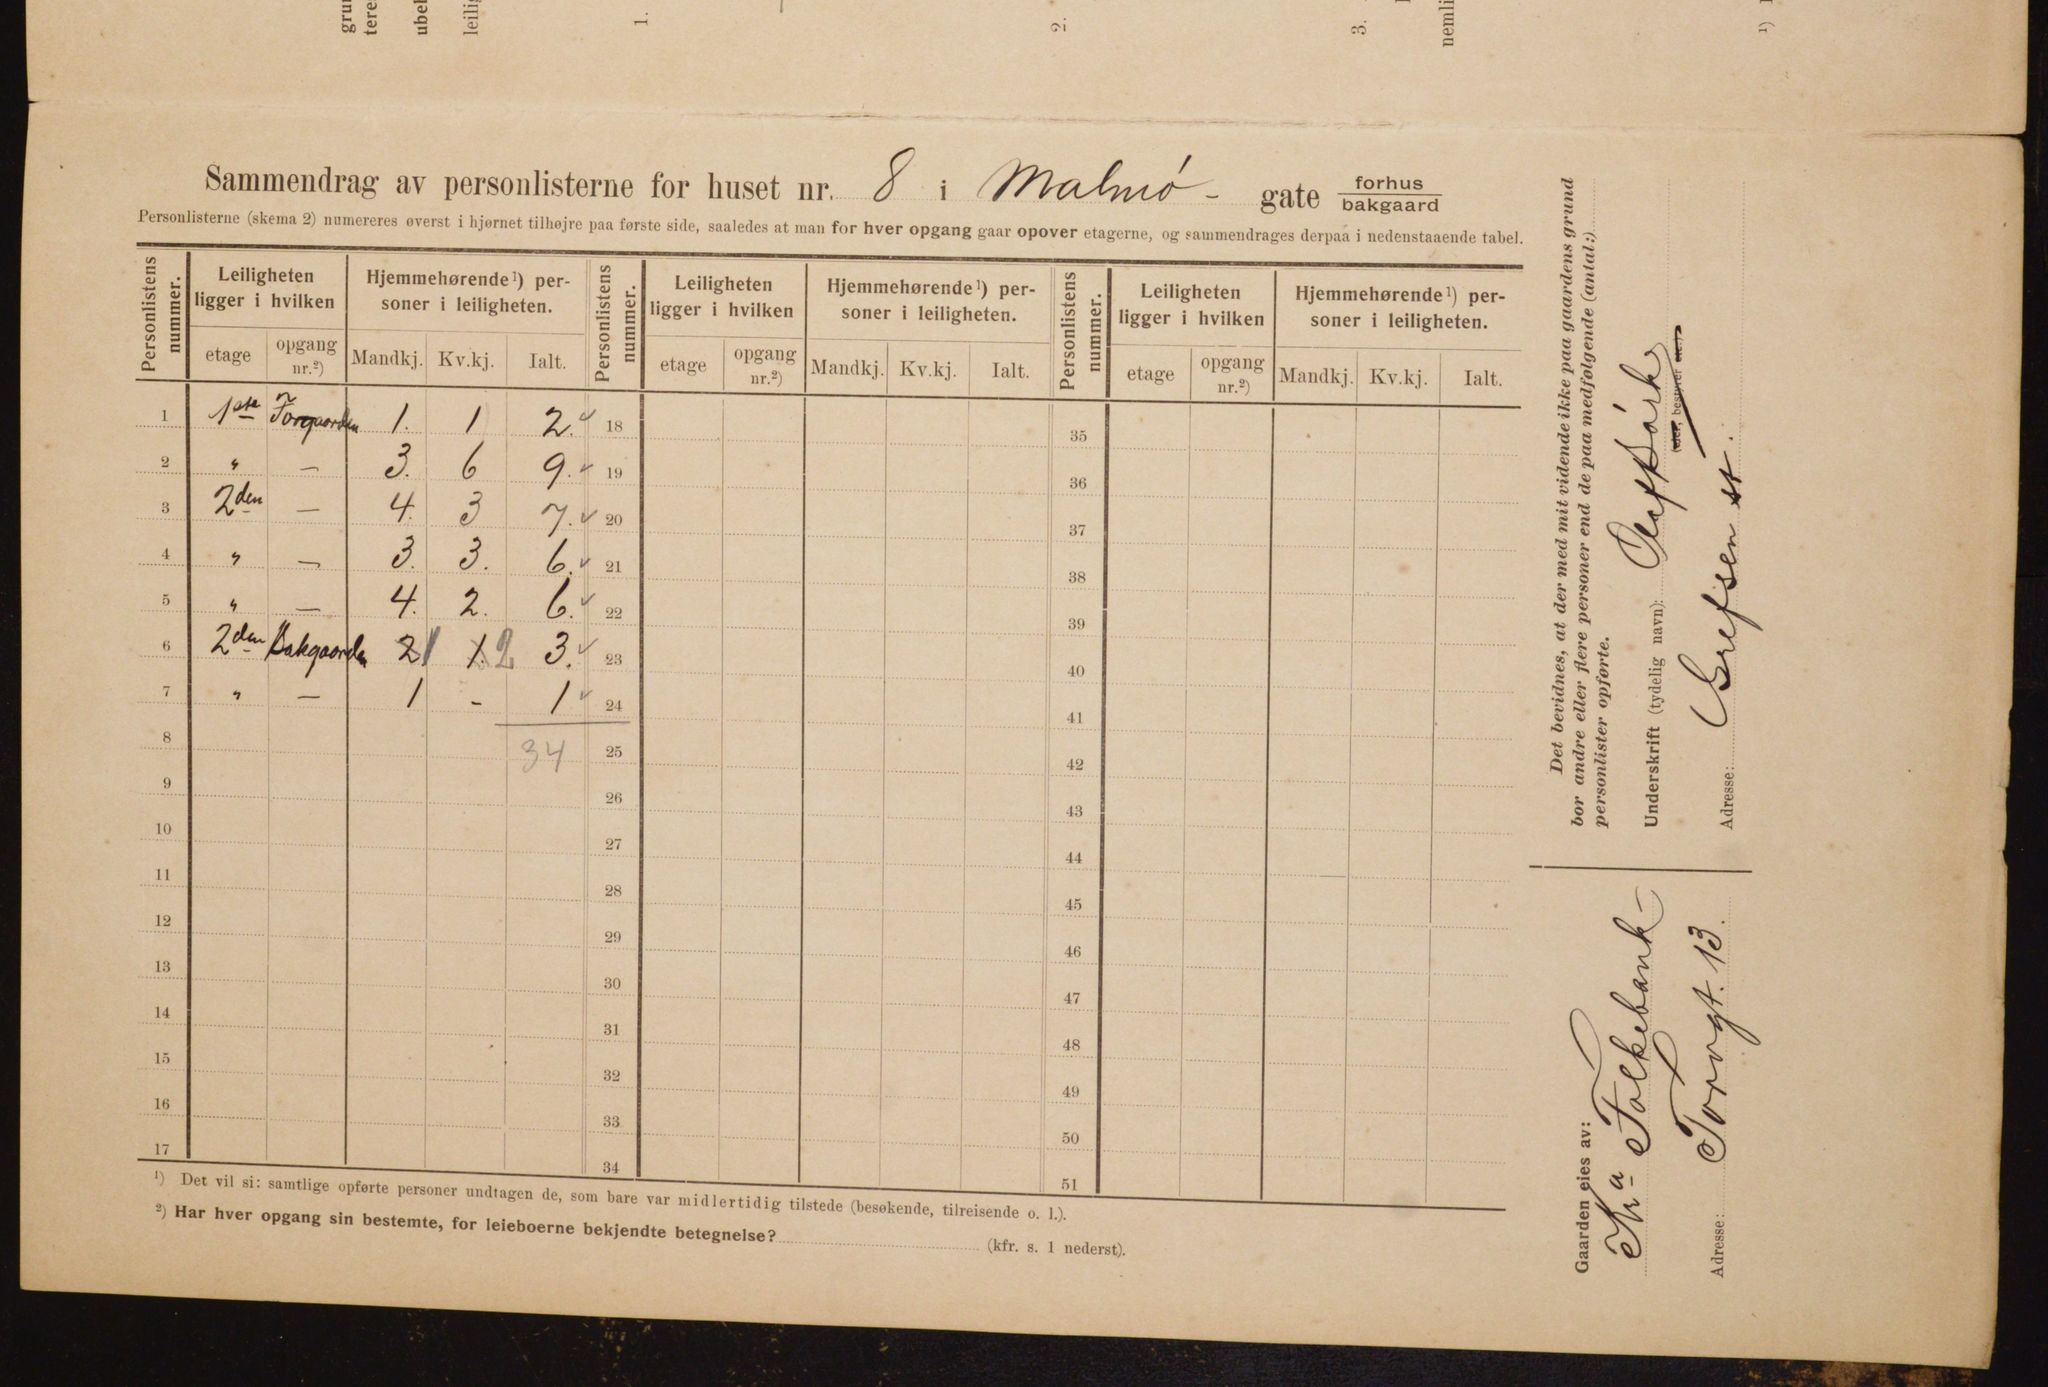 grun
tere
ubel
leilig
1.
2.
3.
nemli
1)
Sammendrag av personlisterne for huset nr. 8 i Malmø- gate forhus bakgaard
Personlisterne (skema 2) numereres øverst i hjørnet tilhøjre paa første side, saaledes at man for hver opgang gaar opover etagerne, og sammendrages derpaa i nedenstaaende tabel.
Personlistens nummer. Leiligheten ligger i hvilken Hjemmehørende¹) personer i leiligheten. Personlistens nummer. Leiligheten ligger i hvilken Hjemmehørende¹) personer i leiligheten. Personlistens nummer. Leiligheten ligger i hvilken Hjemmehørende¹) personer i leiligheten.
etage opgang nr.²) Mandkj. Kv.kj. Ialt. etage opgang nr.²) Mandkj. Kv.kj. Ialt. etage opgang nr.²) Mandkj. Kv.kj. Ialt.
1 1ste Forgaarden 1. 1 2. ✓ 18 35
2 " — 3. 6 9. ✓ 19 36
3 2den — 4. 3 7. ✓ 20 37
4 " — 3. 3. 6. ✓ 21 38
5 " — 4. 2. 6. ✓ 22 39
6 2den Bakgaarden 2 1 1. 2 3. ✓ 23 40
7 " — 1 - 1 ✓ 24 41
8 34 25 42
9 26 43
10 27 44
11 28 45
12 29 46
13 30 47
14 31 48
15 32 49
16 33 50
17 34 51
¹) Det vil si: samtlige opførte personer undtagen de, som bare var midlertidig tilstede (besøkende, tilreisende o. l.).
²) Har hver opgang sin bestemte, for leieboerne bekjendte betegnelse? (kfr. s. 1 nederst).
Det bevidnes, at der med mit vidende ikke paa gaardens grund
bor andre eller flere personer end de paa medfølgende (antal:)
personlister opførte.
Underskrift (tydelig navn): Olaf
bestyrer etc.)
Adresse: Grefsen st.
Gaarden eies av:
Kra Folkebank-
Adresse: Torvgt. 13.